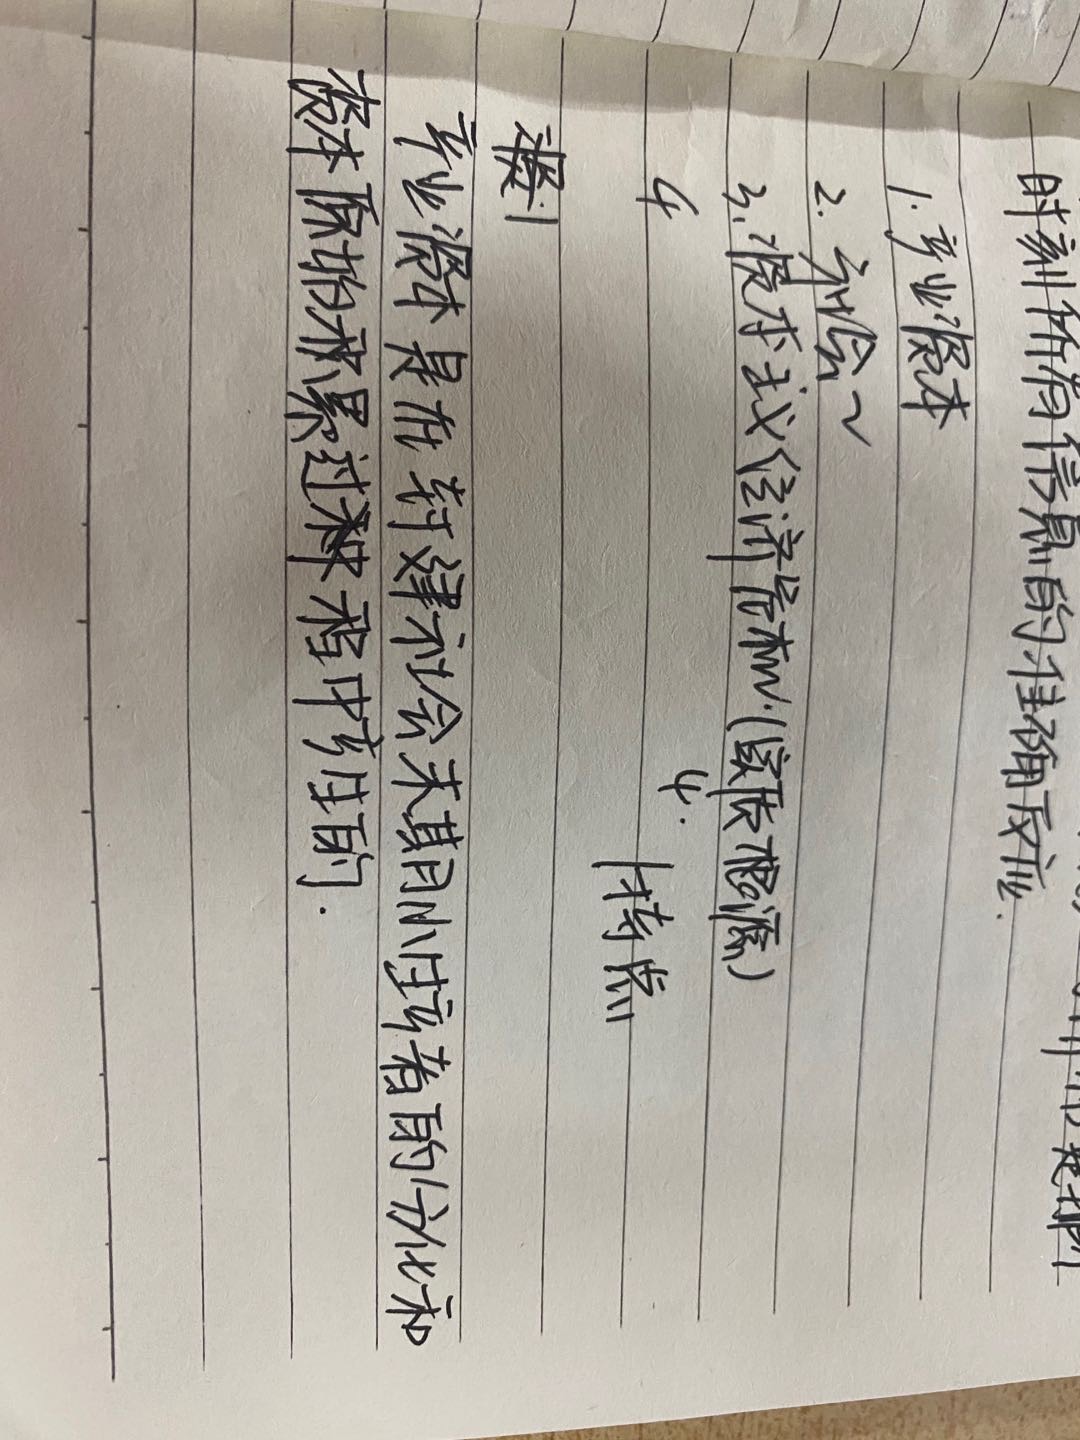 时刻所有信息的准确反应.
1. 产业资本
2. 社会~
3. 资本主义经济危机.(实质根源)
4 4.
特点
产业资本是在封建社会末期小生产者的分化和
资本原始积累过程中产生的.